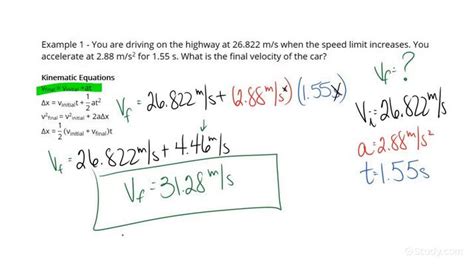 Example 1 - You are driving on the highway at 26.822 m/s when the speed limit increases. You
accelerate at 2.88 m/s² for 1.55 s. What is the final velocity of the car?
Kinematic Equations
v_final = v_initial + at
Δx = v_initial t + 1/2 at²
v²_final = v²_initial + 2aΔx
Δx = 1/2 (v_initial + v_final)t
V_f = 26.822 m/s + (2.88 m/s²)(1.55 s)
V_f = 26.822 m/s + 4.46 m/s
V_f = 31.28 m/s
V_f = ?
V_i = 26.822 m/s
a = 2.88 m/s²
t = 1.55 s
Study.com